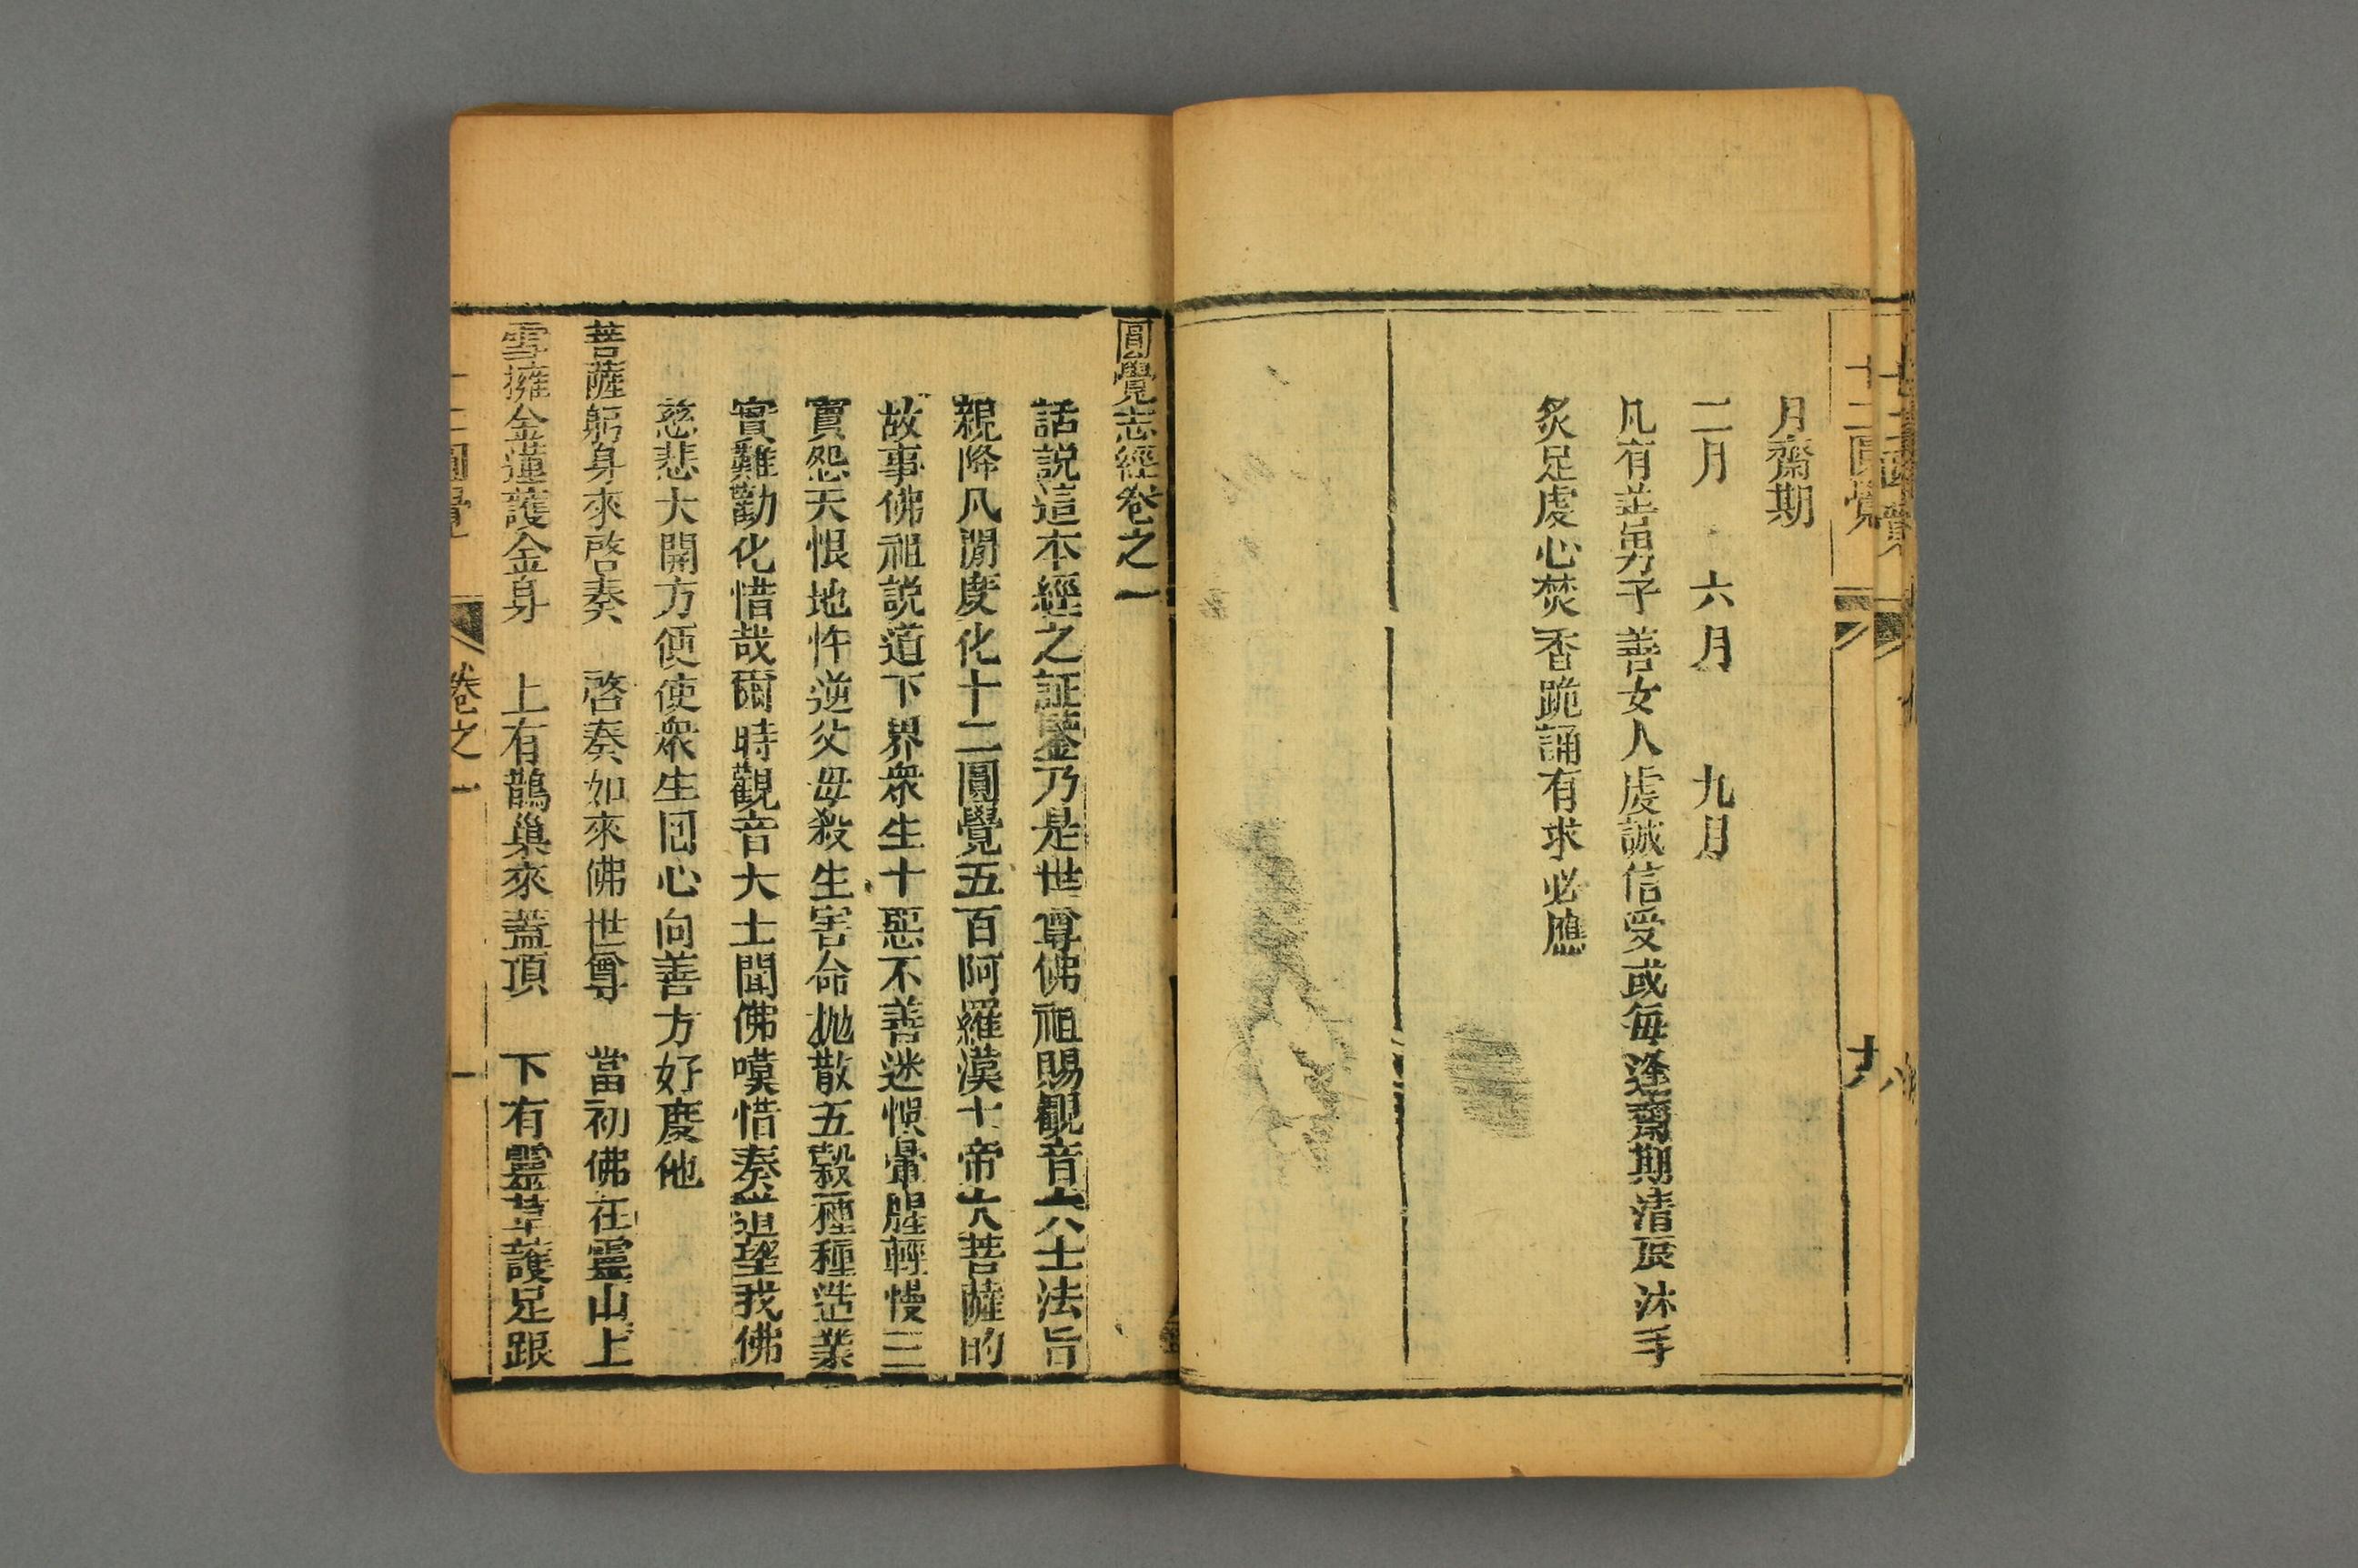 十二圓覺
月齋期
二月 六月 九月
凡有善男子善女人虔誠信受或每逢齋期清晨沐手
炙足虔心焚香跪誦有求必應
圓覺志經卷之一
話説這本經之証鑒乃是世尊佛祖賜觀音大士法旨
親降凡間度化十二圓覺五百阿羅漢十帝大菩薩的
故事佛祖説道下界衆生十惡不善迷惧葷腥輕慢三
寶怨天恨地忤逆父母殺生害命拋散五穀種種造業
實難勸化惜哉爾時觀音大士聞佛嘆惜奏道望我佛
慈悲大開方便使衆生囘心向善方好度他
菩薩躬身來啓奏 啓奏如來佛世尊 當初佛在靈山上
雪擁金蓮護金身 上有鵲巢來蓋頂 下有靈草護足跟
十二圓覺 卷之一 一